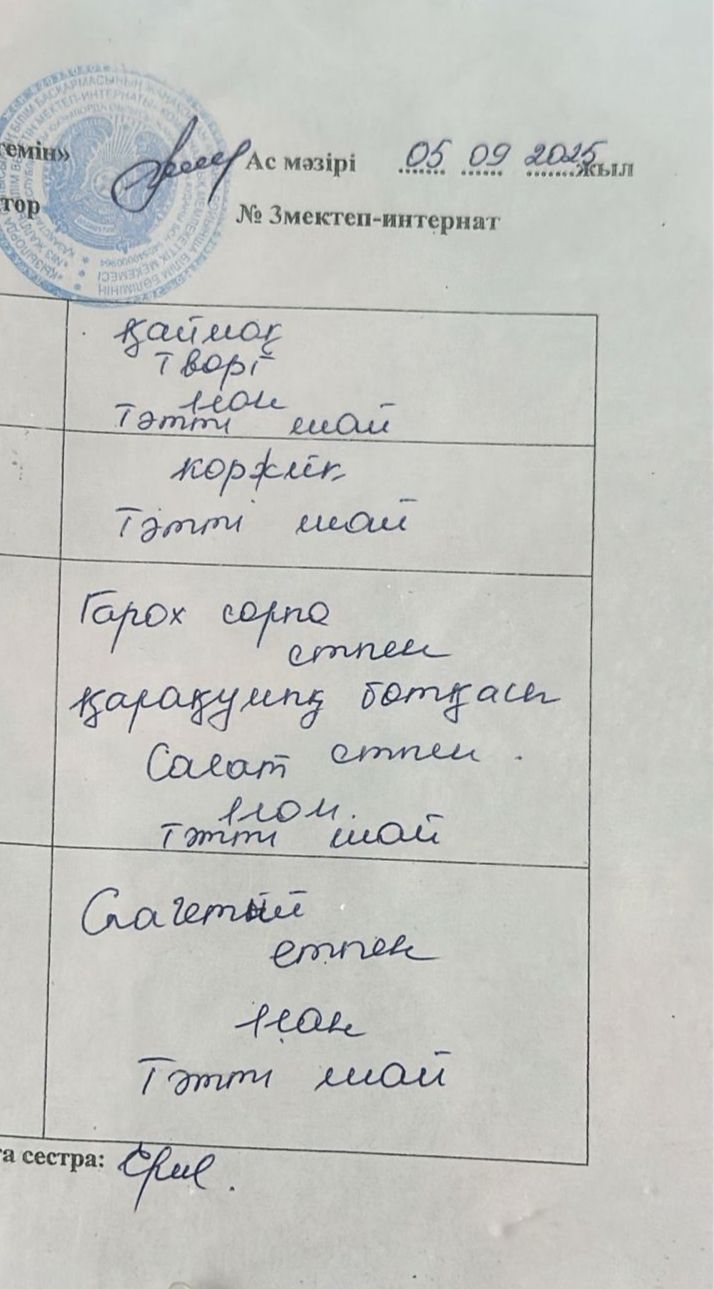 гемін» Ас мәзірі 05 09 2025 жыл
тор № 3мектеп-интернат
қаймақ
творг
нан
тәтті шай
коржик
тәтті шай
Гарох сорпа
етпен
қарақумық ботқасы
Салат етпен.
нан.
тәтті шай
Спагетий
етпен
нан
Тәтті шай
та сестра: